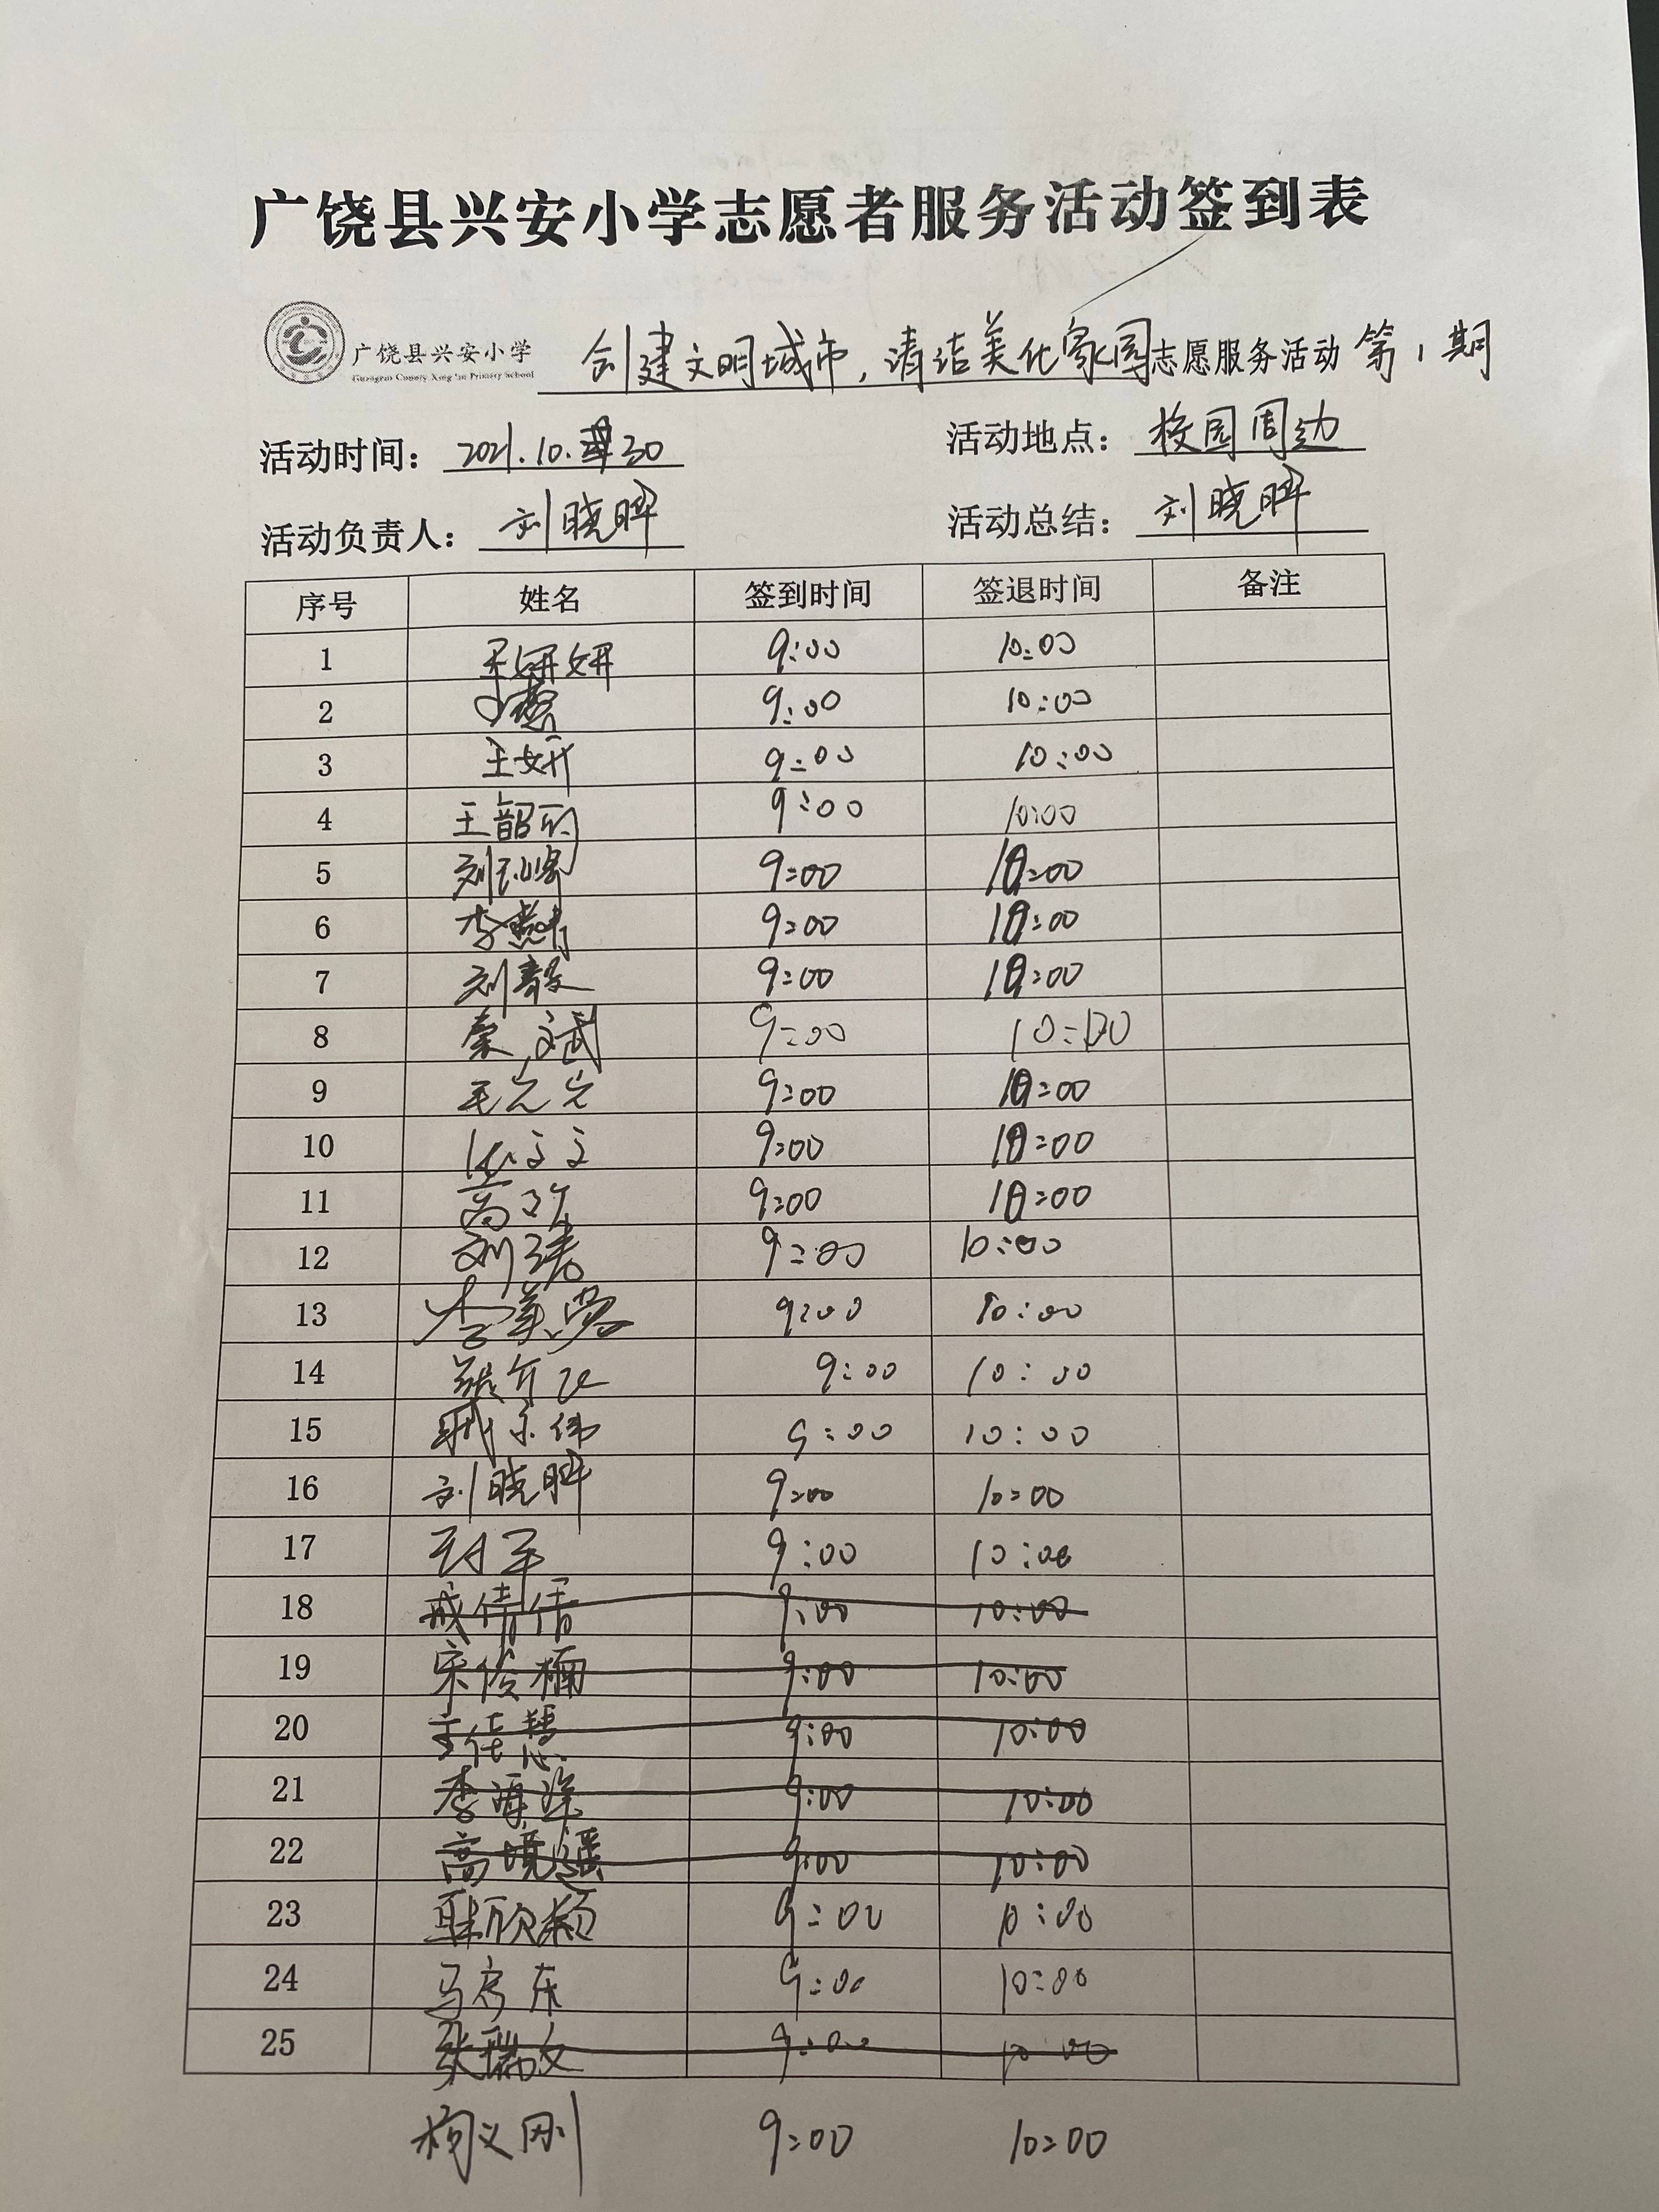 广饶县兴安小学志愿者服务活动签到表
广饶县兴安小学 创建文明城市，清洁美化家园志愿服务活动 第1期
Guangrao County Xing'an Primary School
活动时间：2021.10.30 活动地点：校园周边
活动负责人：刘晓晖 活动总结：刘晓晖
序号 姓名 签到时间 签退时间 备注
1 王妍妍 9:00 10:00
2 9:00 10:00
3 王妍 9:00 10:00
4 王韶 9:00 10:00
5 刘 9:00 10:00
6 李 9:00 10:00
7 刘毅 9:00 10:00
8 荣文武 9:00 10:00
9 9:00 10:00
10 伍文文 9:00 10:00
11 9:00 10:00
12 刘 9:00 10:00
13 李美莹 9:00 10:00
14 9:00 10:00
15 9:00 10:00
16 刘晓晖 9:00 10:00
17 9:00 10:00
18 戒倩倩 9:00 10:00
19 宋俊楠 9:00 10:00
20 王佳慧 9:00 10:00
21 李 9:00 10:00
22 高境遥 9:00 10:00
23 耿欣颖 9:00 10:00
24 马彦东 9:00 10:00
25 张瑞文 9:00 10:00
杨义刚 9:00 10:00